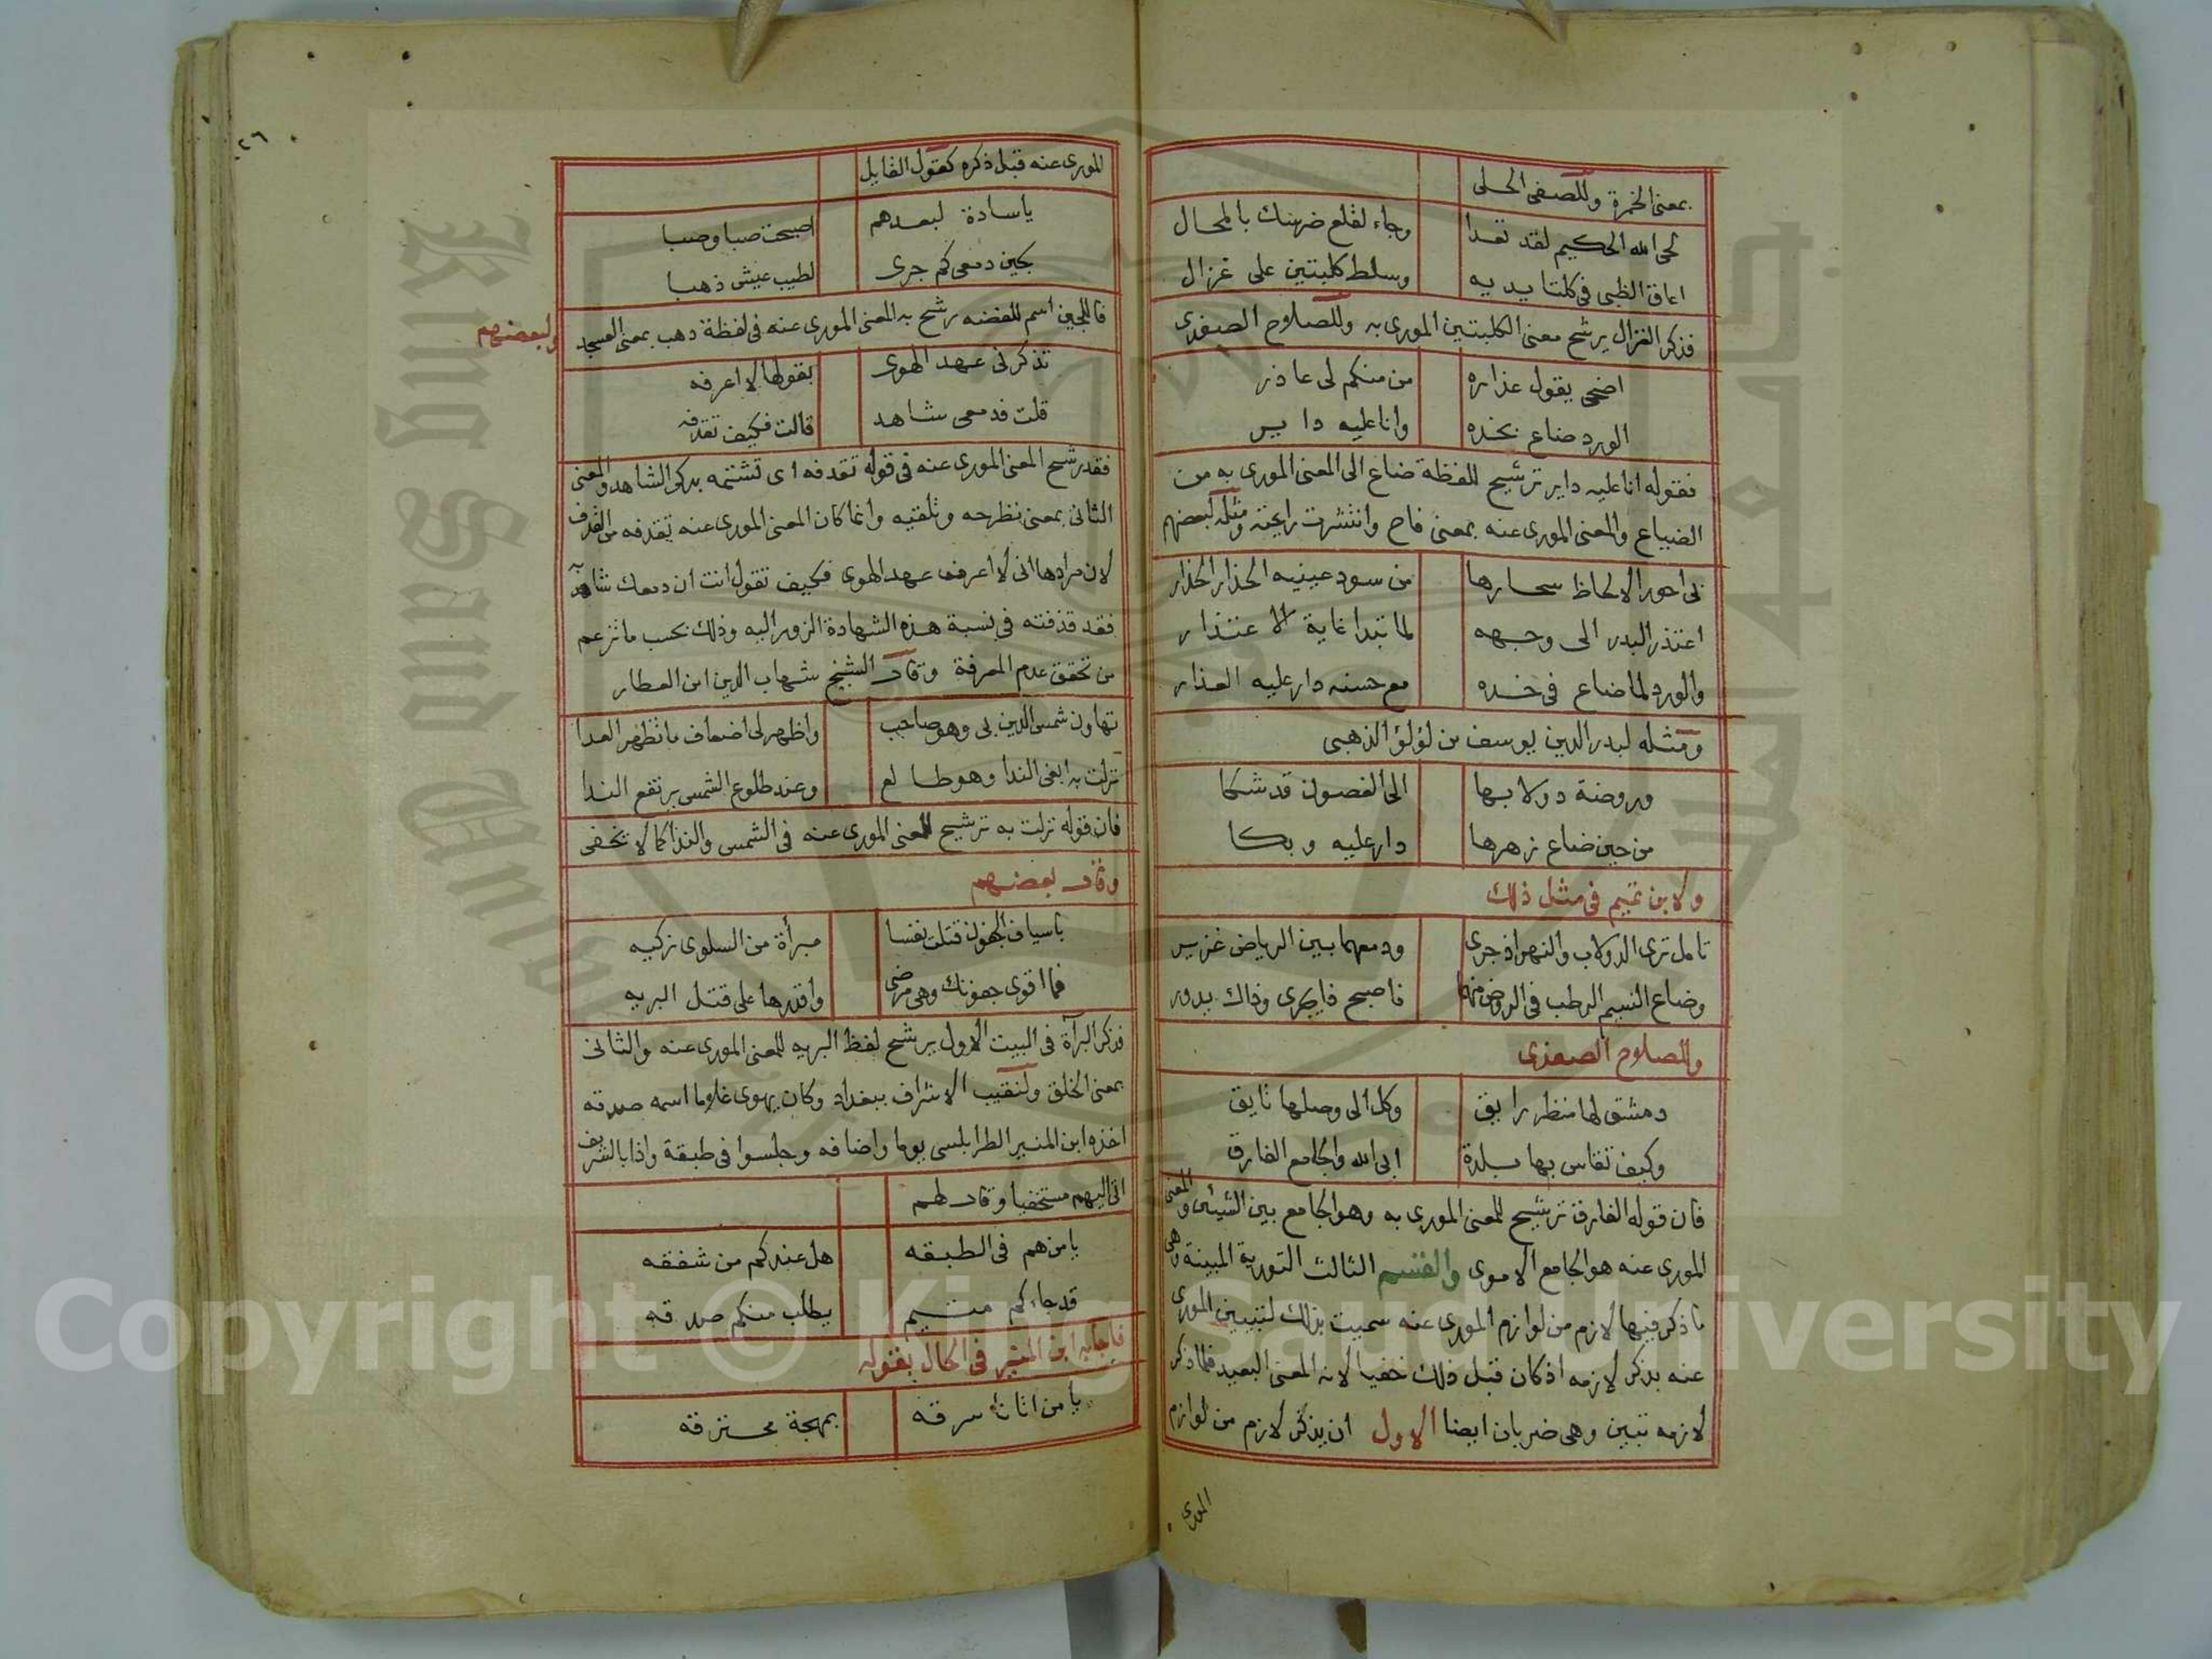 بمعنى الخمرة وللصفى الحلى
لحى الله الحكيم لقد تعدا وجاء لقلع ضرسك بالمحال
اعاق الظبى فى كلتا يديه وسلط كلبتين على غزال
فذكر الغزال يرشح معنى الكلبتين المورى به وللصلاح الصفدى
اضحى يقول عذاره من منكم لى عاذر
الورد ضاع بخده وانا عليه داير
فقوله انا عليه داير ترشيح للفظة ضاع الى المعنى المورى به من
الضياع والمعنى المورى عنه بمعنى فاح وانتشرت رايحته ومثله لبعضهم
بى احور الالحاظ سحارها من سود عينيه الحذار الحذار
اعتذر البدر الى وجهه لما تبدا غاية الاعتذار
والورد لما ضاع فى خده مع حسنه دار عليه العذار
ومثله لبدر الدين يوسف بن لؤلؤ الذهبى
وروضة دولابها الى الغصون قد شكا
من حين ضاع زهرها دار عليه وبكا
ولابن تميم فى مثل ذلك
تامل ترى الدولاب والنهر اذ جرى ودمعهما بين الرياض غزير
وضاع النسيم الرطب فى الروض منهما فاصبح ذا يجرى وذاك يدور
وللصلاح الصفدى
دمشق لها منظر رايق وكل الى وصلها تايق
وكيف تقاس بها بلدة ابى الله والجامع الفارق
فان قوله الفارق ترشيح للمعنى المورى به وهو الجامع بين الشيئين والمعنى
المورى عنه هو الجامع الاموى والقسم الثالث التورية المبينة وهى
ما ذكر فيها لازم من لوازم المورى عنه سميت بذلك لتبيين المورى
عنه بذكر لازمه اذ كان قبل ذلك خفيا لانه المعنى البعيد فلما ذكر
لازمه تبين وهى ضربان ايضا الاول ان يذكر لازم من لوازم
المورى
٢٦
المورى عنه قبل ذكره كقول القايل
ياسادة لبعدهم اصبحت صبا وصبا
لجين دمعى كم جرى لطيب عيش ذهبا
فاللجين اسم للفضه رشح به المعنى المورى عنه فى لفظة ذهب بمعنى العسجد ولبعضهم
تذكرنى عهد الهوى بقولها لا اعرفه
قلت فدمعى شاهد قالت فكيف تقذفه
فقد رشح المعنى المورى عنه فى قوله تقذفه اى تشتمه بذكر الشاهد والمعنى
الثانى بمعنى تطرحه وتلقيه وانما كان المعنى المورى عنه تقذفه من القذف
لان مرادها انى لا اعرف عهد الهوى فكيف تقول انت ان دمعك شاهد
فقد قذفته فى نسبة هذه الشهادة الزور اليه وذلك بحسب ما تزعم
من تحقق عدم المعرفة وقال الشيخ شهاب الدين ابن العطار
تهاون شمس الدين بى وهو صاحب واظهر لى اضعاف ما تظهر العدا
نزلت به ابغى الندا وهو طالع وعند طلوع الشمس يرتفع الندا
فان قوله نزلت به ترشيح للمعنى المورى عنه فى الشمس والندا كما لا يخفى
وقال بعضهم
باسياف الجفون قتلت نفسا مبرأة من السلوى زكيه
فما اقوى جفونك وهى مرضى واقدرها على قتل البريه
فذكر البرآة فى البيت الاول يرشح لفظ البريه للمعنى المورى عنه والثانى
بمعنى الخلق ولنقيب الاشراف ببغداد وكان يهوى غلاما اسمه صدقه
اخذه ابن المنير الطرابلسى يوما واضافه وجلسوا فى طبقة واذا بالشريف
اتى اليهم مستخفيا وقال لهم
يا من هم فى الطبقه هل عندكم من شفقه
قد جاءكم متيم يطلب منكم صدقه
فاجابه ابن المنير فى الحال بقوله
يا من اتانا سرقه بمهجة محترقه
King Saud University
Copyright © King Saud University